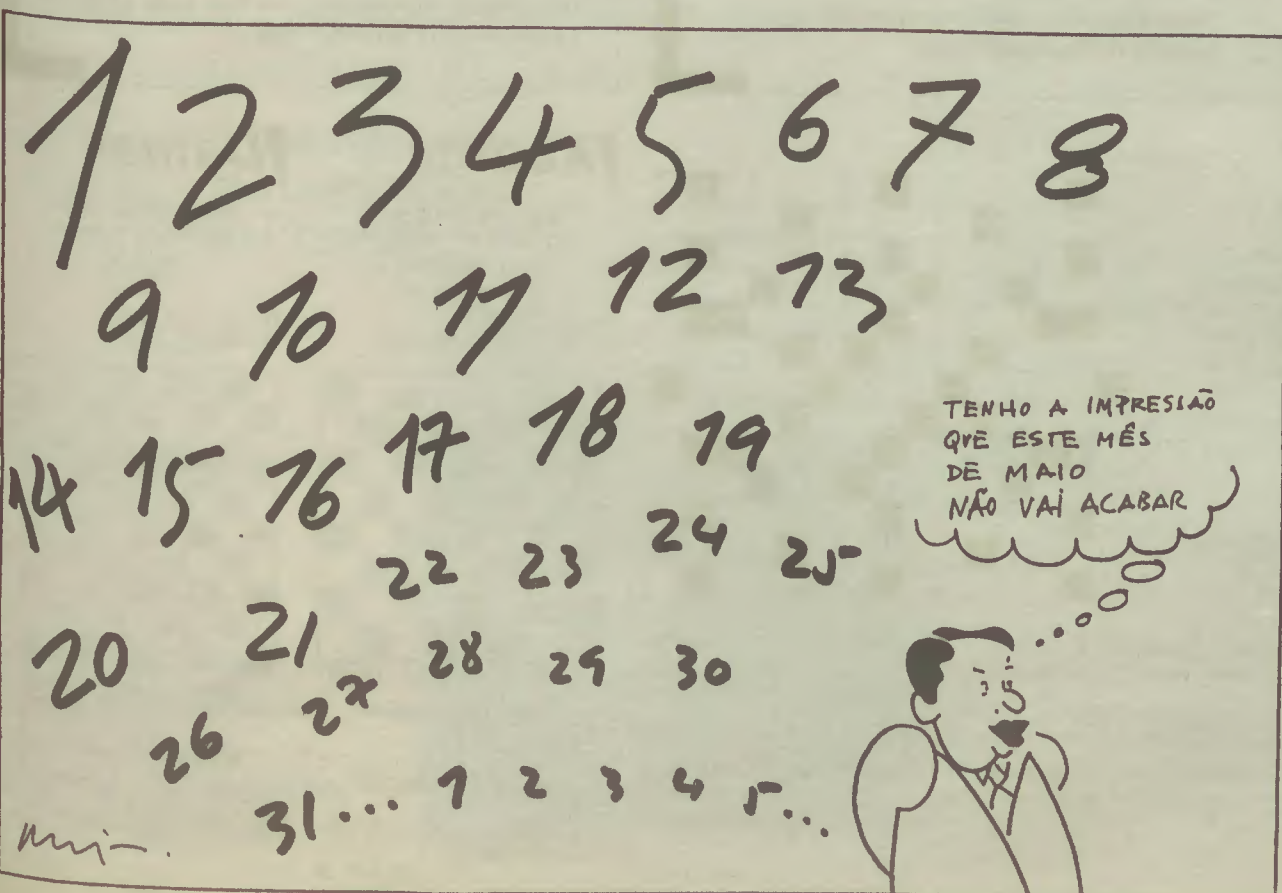 1 2 3 4 5 6 7 8
9 10 11 12 13
14 15 16 17 18 19
20 21 22 23 24 25
26 27 28 29 30
31... 1 2 3 4 5...
TENHO A IMPRESSÃO
QUE ESTE MÊS
DE MAIO
NÃO VAI ACABAR